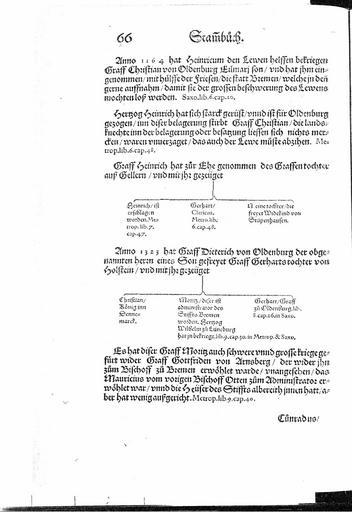 66
Stam̃bůch.
Anno 1164 hat Heinricum den Lewen helffen bekriegen
Graff Christian von Oldenburg Eilmarj son / vnd hat jhm ein-
genommen / mit hülffe der Friesen / die statt Bremen / welche jn den
gerne auffnahm / damit sie der grossen beschwerung des Lewens
mochten loß werden. Saxo.lib.6.cap.10.
Hertzog Heinrich hat sich starck gerüst / vnnd ist für Oldenburg
gezogen / inn diser belagerung stirbt Graff Christian / die lands-
knechte inn der belagerung oder besatzung liessen sich nichts mer-
cken / waren vnuerzaget / das auch der Lewe müste abzihen. Me-
trop.lib.6.cap.48.
Graff Heinrich hat zür Ehe genommen des Graffen tochter
auß Gellern / vnd mit jhr gezeiget
Heinrich / ist
erschlagen
worden. Me-
trop.lib.7.
cap.47.
Gerhart /
Clericus.
Metro.lib.
6.cap.48.
Vnd eine tochter / die
freyet Widekind von
Stupenhausen.
Anno 1323 hat Graff Dieterich von Oldenburg der obge-
nannten herrn eines Son gefreyet Graff Gerharts tochter von
Holstein / vnd mit jhr gezeiget
Christian /
König inn
Denne-
marck.
Moritz / diser ist
administrator des
Stiffts Bremen
worden. Hertzog
Wilhelm zu Lüneburg
hat jn bekrieget. lib.9.cap.30. in Metrop. & Saxo.
Gerhart / Graff
zu Oldenburg. lib.
8.cap.26. in Saxo.
Es hat diser Graff Moritz auch schwere vnnd grosse kriege ge-
fürt wider Graff Gottfriden von Arnsberg / der wider jhn
zům Bischoff zů Bremen erwöhlet warde / vnangesehen / das
Mauricius vom vorigen Bischoff Otten zům Administrator er-
wöhlet war / vnnd die Heüser des Stiffts albereith jnnen hatt / a-
ber hat wenig außgericht. Metrop.lib.9.cap.40.
Cůnradus /